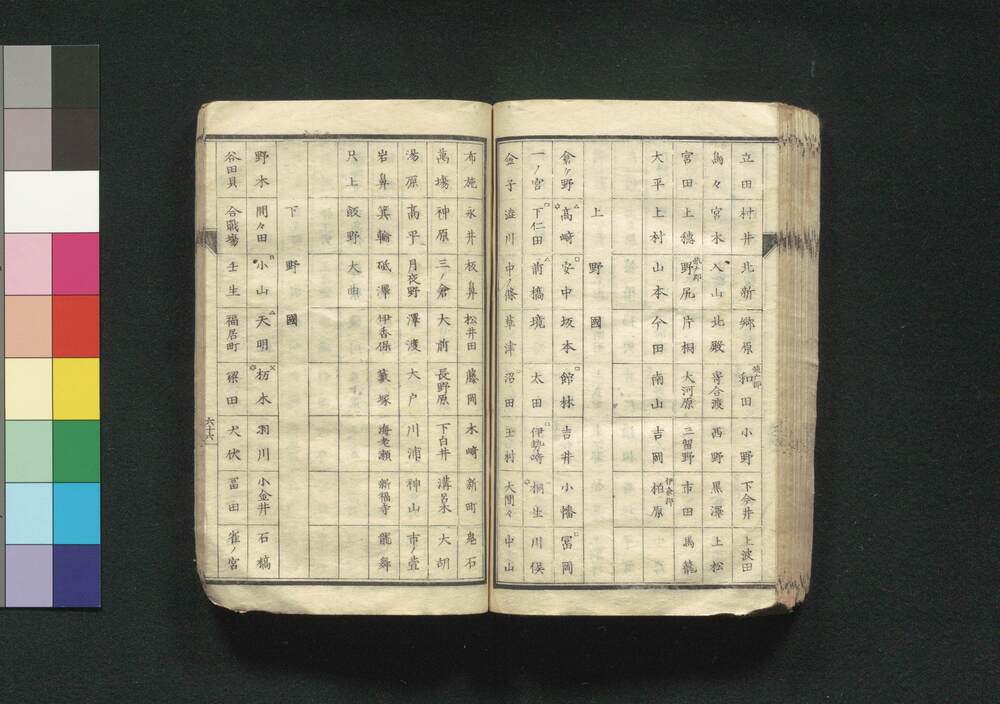 立田 村井 北新 郷原 和田 小野 下今井 上波田
島々 宮木 入山 北殿 寄合渡 西野 黒澤 上松
宮田 上穂 野尻 片桐 大河原 三留野 市田 馬籠
大平 上村 山本 今田 南山 吉岡 柏原
上野國
倉ヶ野 高崎 安中 坂本 館林 吉井 小幡 冨岡
一ノ宮 下仁田 前橋 境 太田 伊勢崎 桐生 川俣
金子 澁川 中ノ條 草津 沼田 玉村 大間々 中山
布施 永井 板鼻 松井田 藤岡 木崎 新町 鬼石
萬塲 神原 三ノ倉 大前 長野原 下白井 溝呂木 大胡
湯原 高平 月夜野 澤渡 大戸 川浦 神山 市ノ萱
岩鼻 箕輪 砥澤 伊香保 藪塚 海老瀬 新福寺 龍舞
只上 飯野 大曲
下野國
野木 間々田 小山 天明 栃木 羽川 小金井 石橋
谷田貝 合戰塲 壬生 福居町 梁田 犬伏 冨田 雀ノ宮
六十六